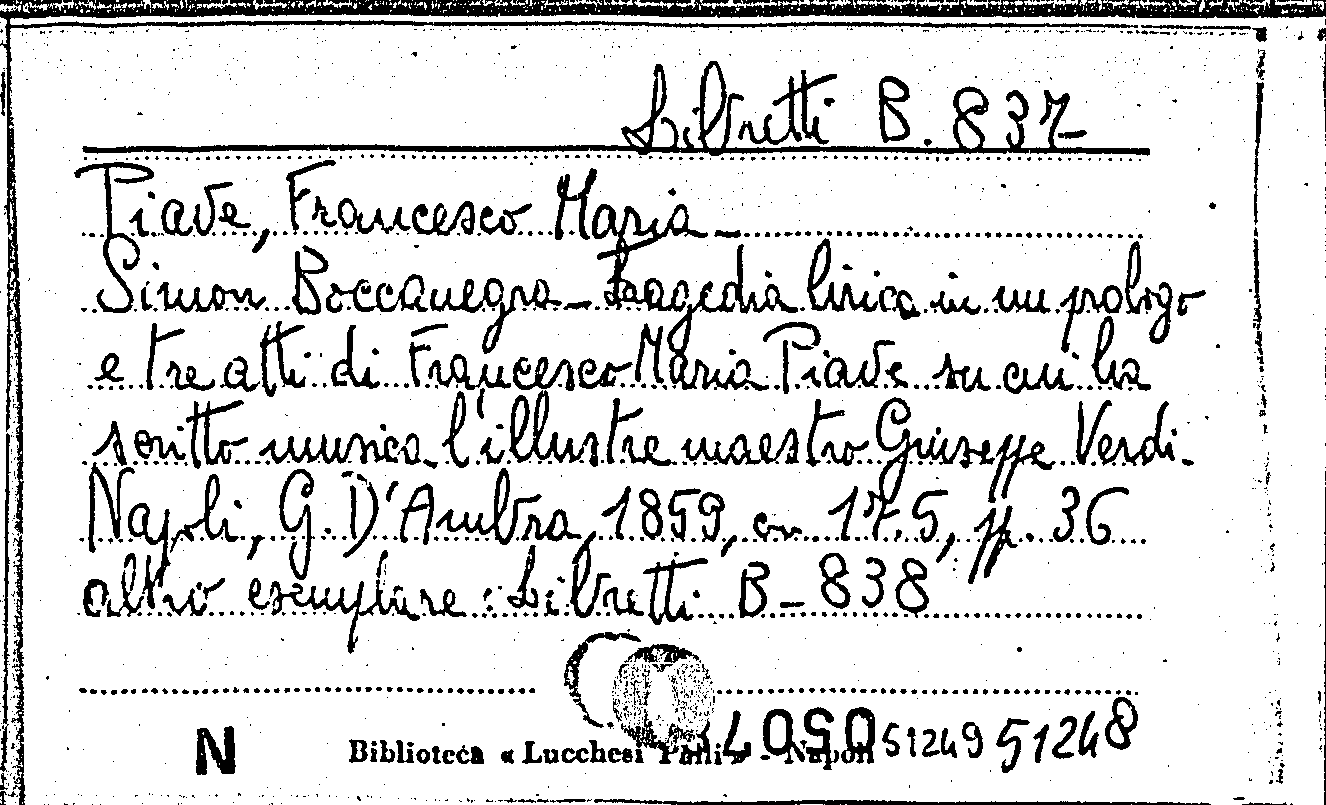 Libretti B. 837
Piave, Francesco Maria -
Simon Boccanegra - Tragedia lirica in un prologo
e tre atti di Francesco Maria Piave su cui ha
scritto musica l'illustre maestro Giuseppe Verdi -
Napoli, G. D'Ambra, 1859, cm. 17.5, pp. 36
altro esemplare: Libretti B - 838
N Biblioteca « Lucchesi Palli » - Napoli 51249 51248